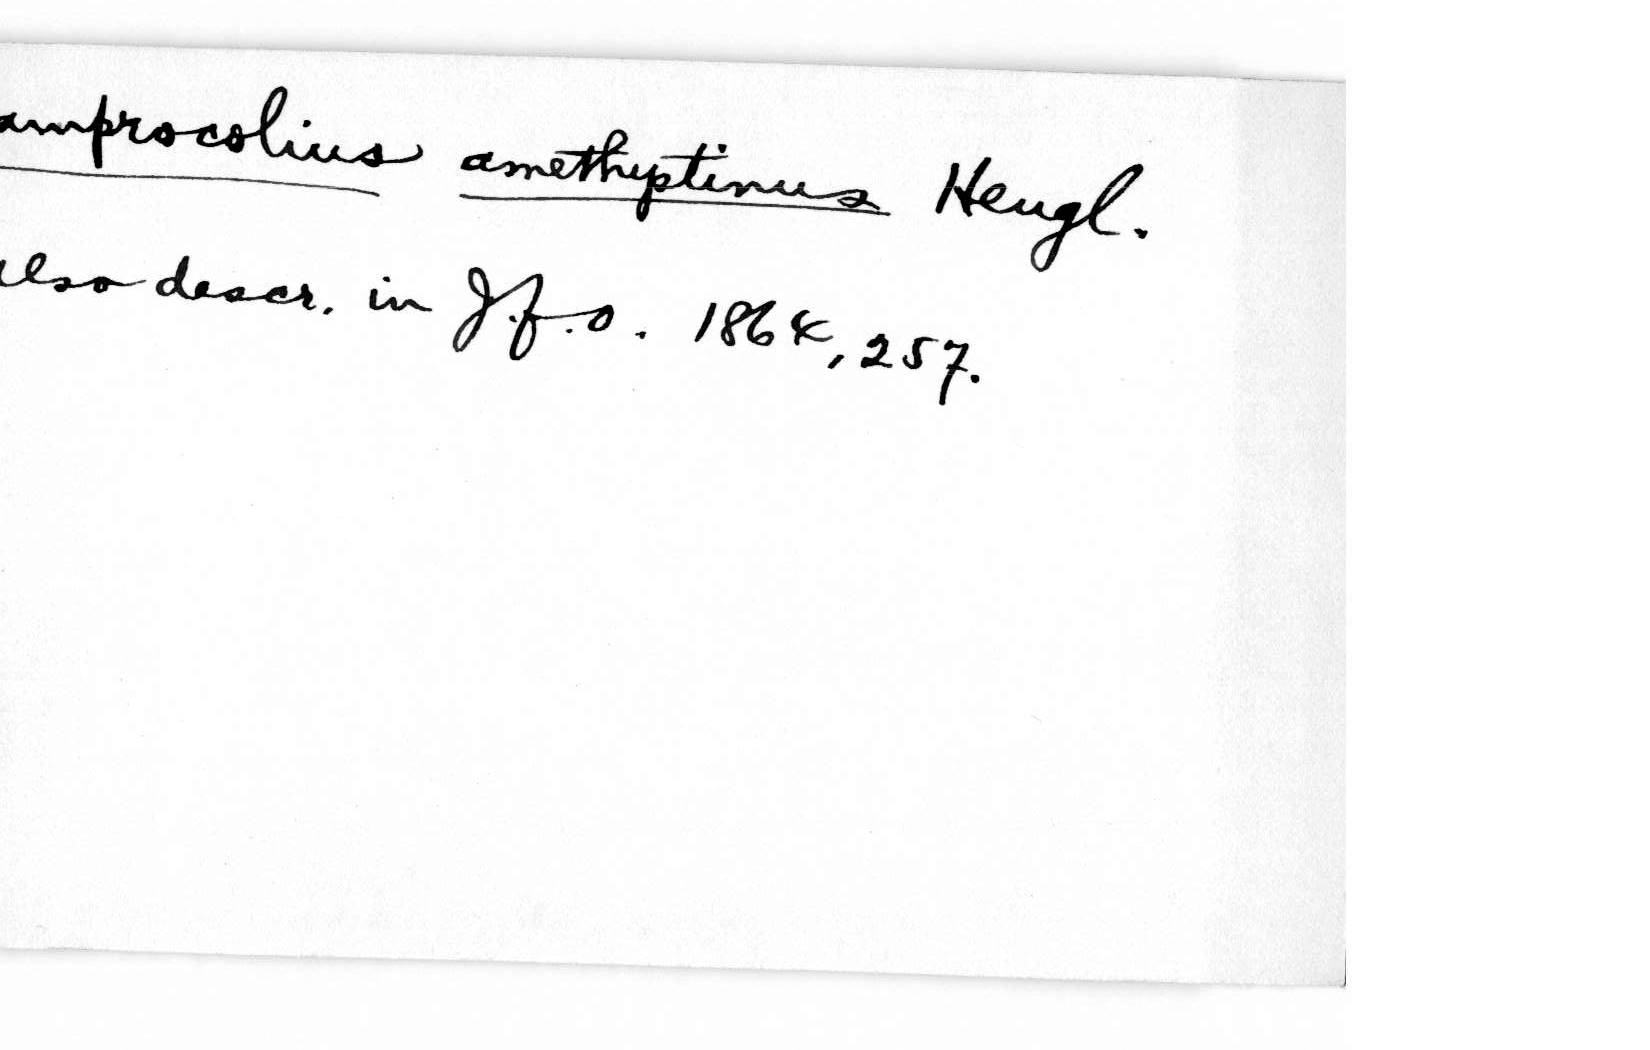 amprocolius amethystinus Heugl.
also descr. in J.f.O. 1864, 257.